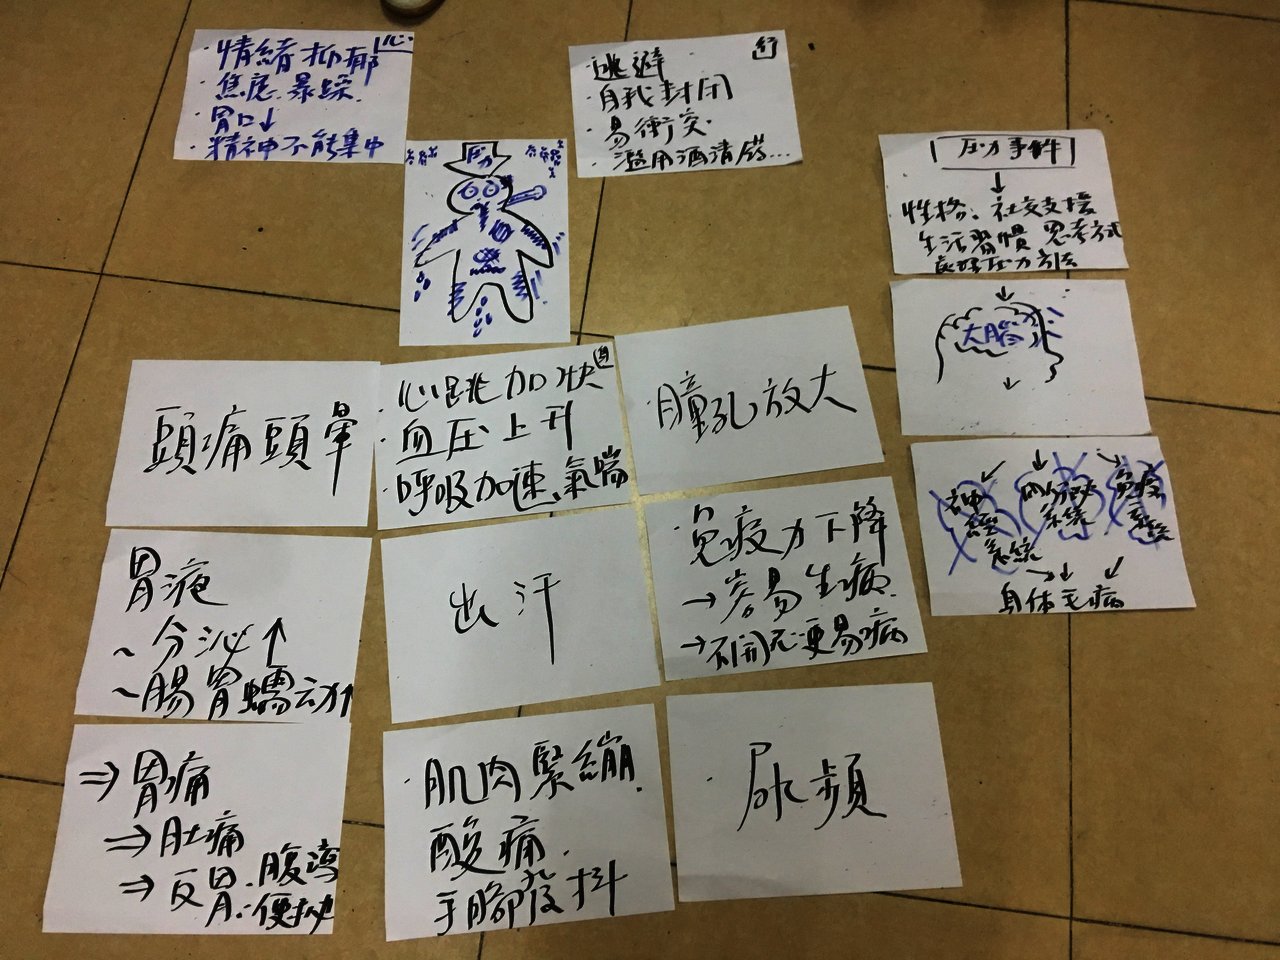 心
・情緒抑郁
・焦慮.暴躁.
・胃口↓
・精神不能集中
行
・逃避
・自我封閉
・易衝突.
・濫用酒清藥...
压力
压力事件
↓
性格、社交支援
生活習慣 思考方式
處理压力方法
↓
大腦
↓
神經系統
內分泌系統
免疫系統
身体毛病
頭痛頭暈
・心跳加快
・血压上升
・呼吸加速、氣喘
瞳孔放大
胃液
~分泌↑
~腸胃蠕动↑
出汗
・免疫力下降
→容易生病.
→不開心更易病
⇒胃痛
⇒肚痛
⇒反胃.腹瀉
.便秘
・肌肉緊繃.
酸痛.
手腳發抖
・尿頻